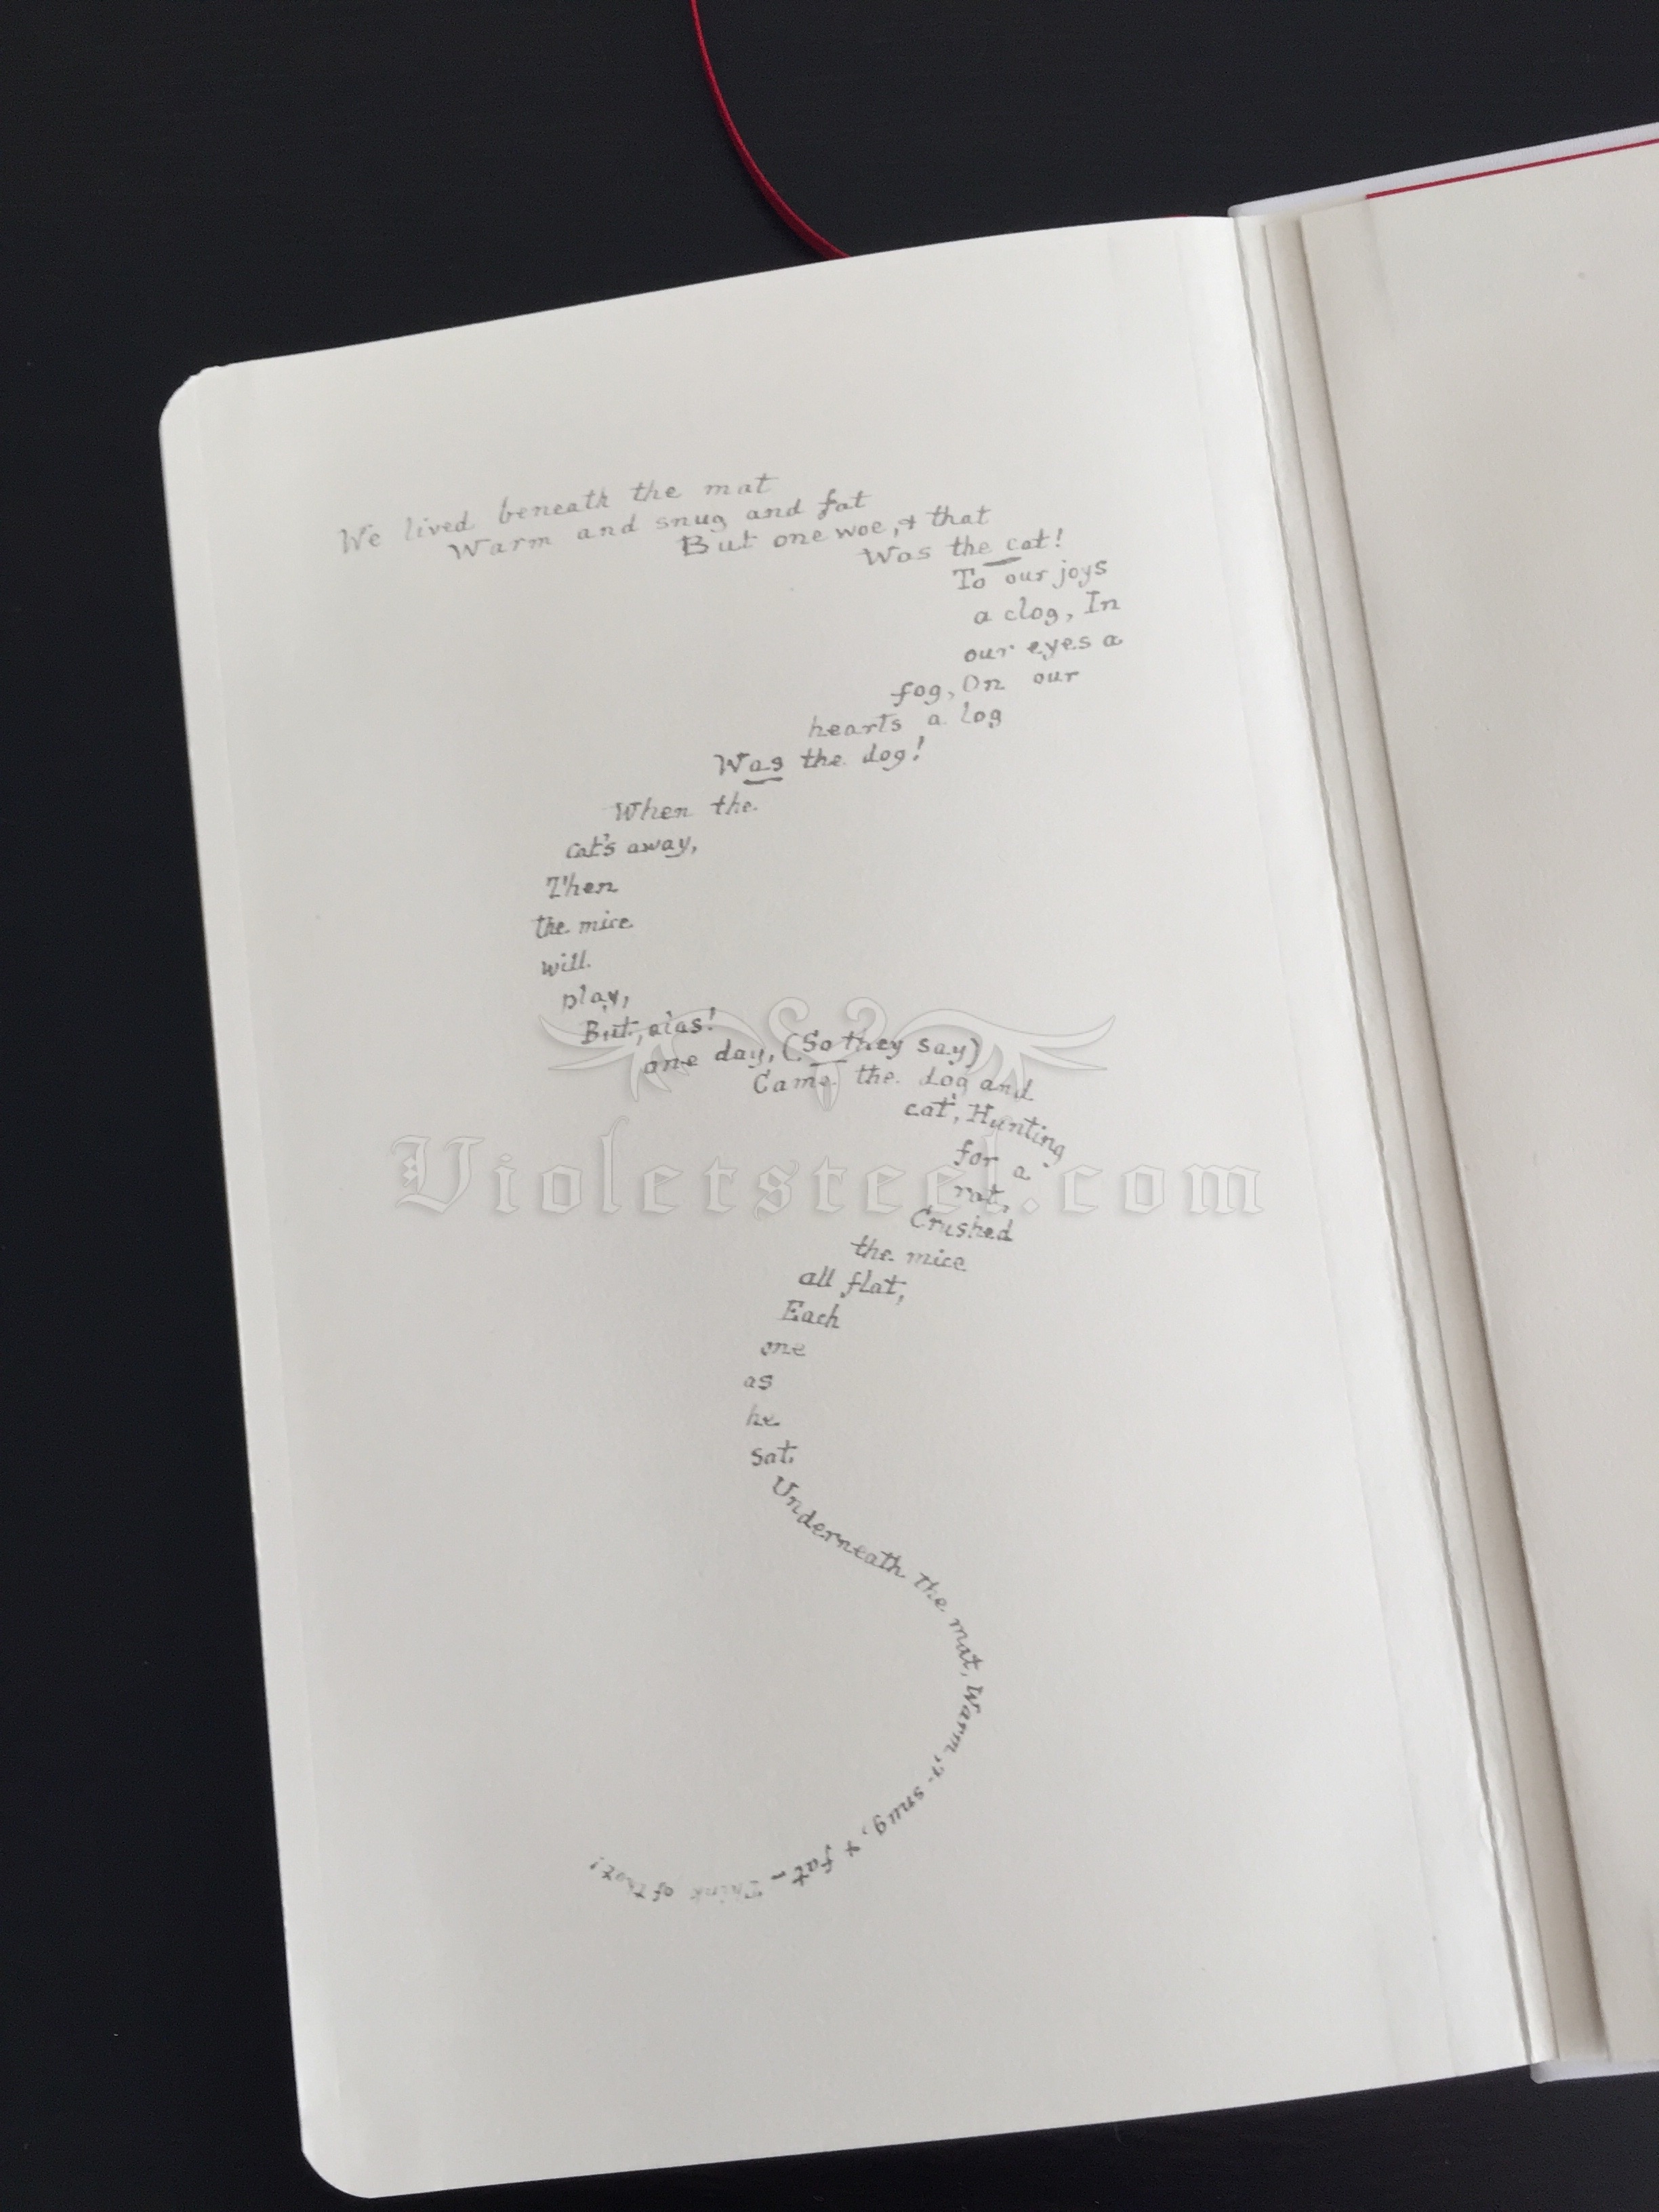 We lived beneath the mat
Warm and snug and fat
But one woe, & that
Was the cat!
To our joys
a clog, In
our eyes a
fog, On our
hearts a log
Was the dog!
When the
cat's away,
Then
the mice
will
play,
But, alas!
one day, (So they say)
Came the dog and
cat, Hunting
for a
rat,
Crushed
the mice
all flat,
Each
one
as
he
sat
Underneath the mat, Warm, & snug, & fat - Think of that!
Violetsteel.com